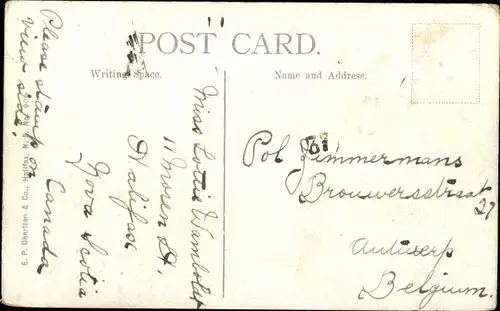 POST CARD.
Writing Space.
Name and Address.
Please stamp on
view side.
Miss Lottie Wamboldt
11 Moren St.
Halifax
Nova Scotia
Canada
E. P. Charlton & Co., Halifax, N.
61
Pol Zimmermans
Brouwersstraat
27
Antwerp
Belgium.